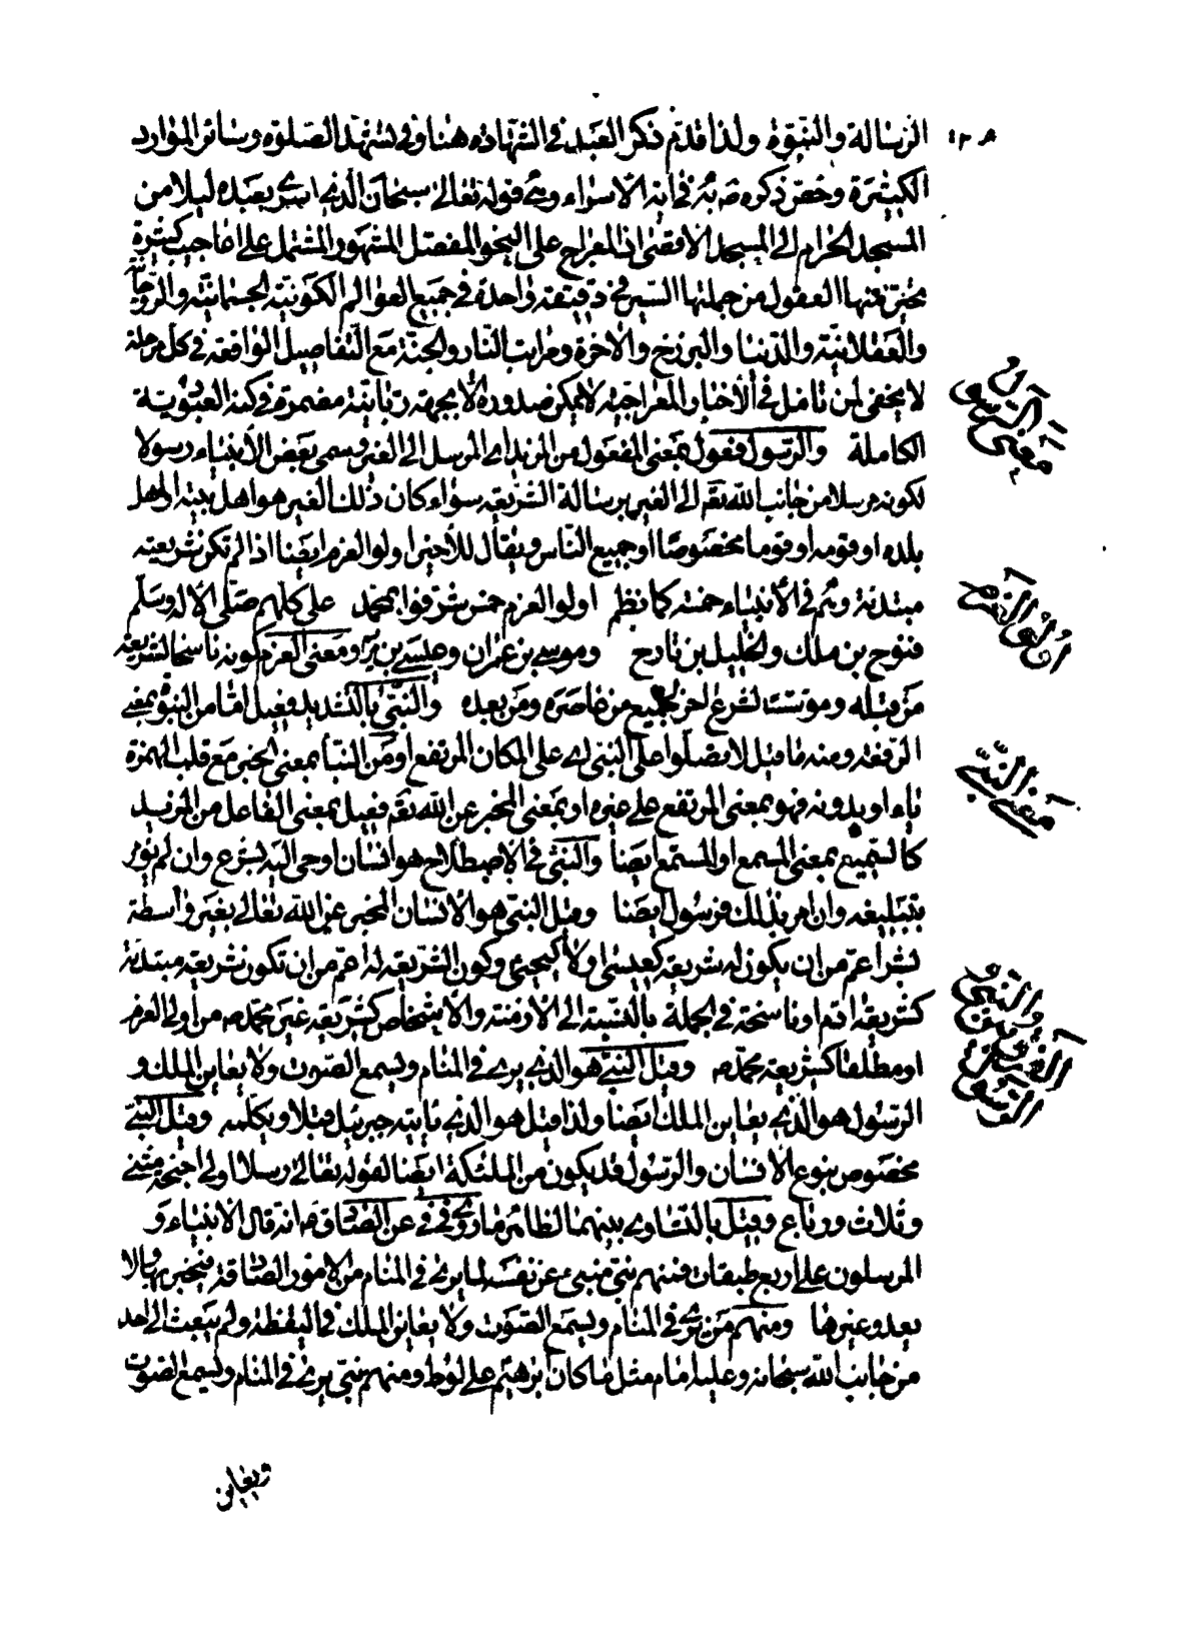 الرسالة والنبوّة ولذا قدّم ذكر العبد في الشهادة هنا وفي تشهّد الصلوة وسائر الموارد
الكثيرة وخصّ ذكره به في اية الأسراء وهي قوله تعالى سبحان الذي اسرى بعبده ليلا من
المسجد الحرام الى المسجد الاقصى اذ المعراج على النحو المفصّل المشهور المشتمل على اعاجيب كثيرة
يتحيّر فيها العقول من جملتها السير في دقيقة واحدة في جميع العوالم الكونيّة الجسمانيّة والروحانيّة
والعقلانيّة والدّنيا والبرزخ والاخرة ومراتب النار والجنّة مع التّفاصيل الواقعة في كل مرحلة
لا يخفى لمن تامّل في الأخبار المعراجيّة لا يمكن صدوره الا بجهة ربّانيّة مضمرة في كنه العبوديّة
الكاملة والرّسول فعول بمعنى المفعول من المزيد اي المرسل الى الغير وسمى بعض الأنبياء رسولا
لكونه مرسلا من جانب اللّه تع الى الغير برسالة الشّريعة سواء كان ذلك الغير هو اهل بيته او اهل
بلده او قومه او قوما مخصوصا او جميع الناس ويقال للأخير اولو العزم ايضا اذا لم تكن شريعته
مبتدئة وهم في الأنبياء خمسة كما نظم اولو العزم خمس شرّفوا بمحمّد على كلهم صلّى الأله وسلّم
فنوح بن ملك والخليل بن تارح وموسى بن عمران وعيسى بن مريم ومعنى العزم كونه ناسخا لشريعة
من قبله ومؤسّسا لشرع اخر لجميع من عاصره ومن بعده والنبيّ بالتشديد فعيل امّا من النبوة بمعنى
الرّفعة ومنه ما قيل لا تصلّوا على النبي اي على المكان المرتفع او من النبأ بمعنى الخبر مع قلب الهمزة
ياء او بدونه فهو بمعنى المرتفع على غيره او بمعنى المخبر عن اللّه تع فعيل بمعنى الفاعل من المزيد
كالسّميع بمعنى المسمع او المستمع ايضا والنبيّ في الاصطلاح هو انسان اوحي اليه بشرع وان لم يؤمر
بتبليغه وان امر بذلك فرسول ايضا وقيل النبيّ هو الأنسان المخبر عن اللّه تعالى بغير واسطة
بشر اعمّ من ان يكون له شريعة كعيسى او لا كيحيى وكون الشّريعة له اعمّ من ان تكون شريعة مبتدئة
كشريعة ادم او ناسخة في الجملة بالنسبة الى الأزمنة والأشخاص كشريعة غير محمّد ص من اولى العزم
او مطلقا كشريعة محمّد ص وقيل النبيّ هو الذي يرى في المنام ويسمع الصّوت ولا يعاين الملك و
الرسول هو الذي يعاين الملك ايضا ولذا قيل هو الذي ياتيه جبرئيل قبلا ويكلّمه وقيل النبيّ
مخصوص بنوع الأنسان والرسول قد يكون من الملئكة ايضا لقوله تعالى رسلا اولي اجنحة مثنى
وثلاث ورباع وقيل بالتساوي بينهما لظاهر ما روي في في عن الصّادق ع انه قال الانبياء و
المرسلون على اربع طبقات فمنهم نبيّ منبىء عن نفسه لما يرى في المنام من الأمور الصّادقة فيخبر بها بالا
يعدو غيرها ومنهم من يرى في المنام ويسمع الصّوت ولا يعاين الملك في اليقظة ولم يبعث الى احد
من جانب اللّه سبحانه وعليه امام مثل ما كان ابرهيم على لوط ومنهم نبيّ يرى في المنام ويسمع الصوت
ويعاين
معنى الرسول
اولو العزم
معنى النبيّ
الفرق بين النبيّ والرسول